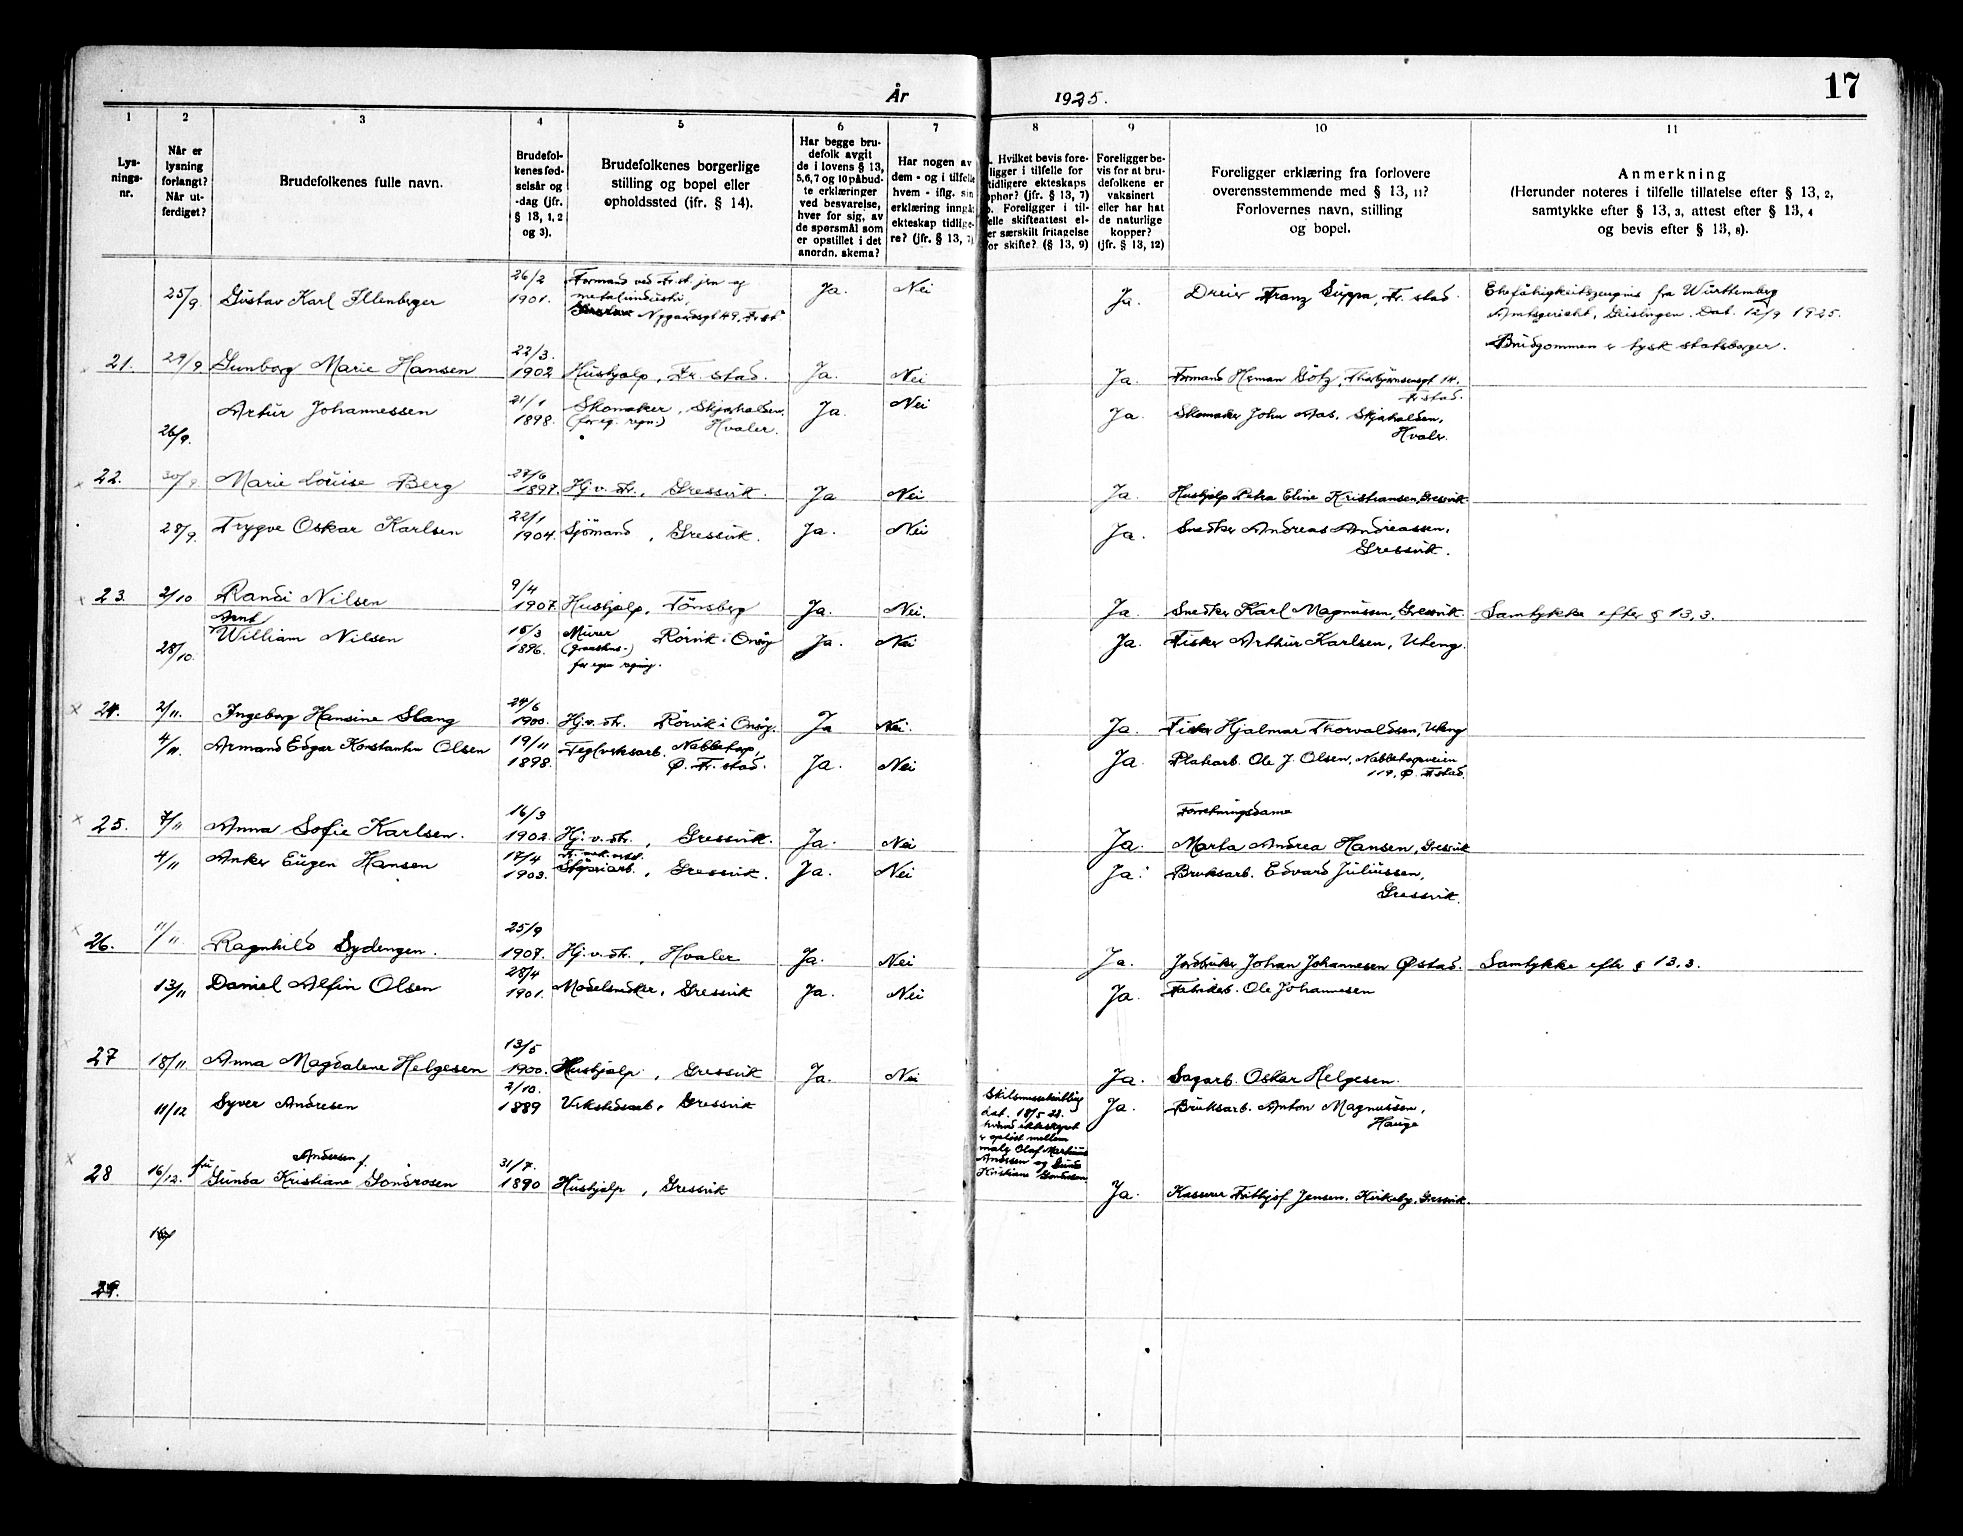 17
År 1925.
1 2 3 4 5 6 7 8 9 10 11
Lys-
nings-
nr.
Når er
lysning
forlangt?
Når ut-
ferdiget?
Brudefolkenes fulle navn.
Brudefol-
kenes fød-
selsår og
-dag (jfr.
§ 13, 1, 2
og 3).
Brudefolkenes borgerlige
stilling og bopel eller
opholdssted (ifr. § 14).
Har begge bru-
defolk avgit
de i lovens § 13,
5,6,7 og 10 påbud-
te erklæringer
ved besvarelse,
hver for sig, av
de spørsmål som
er opstillet i det
anordn. skema?
Har nogen av
dem - og i tilfelle
hvem - iflg. sin
erklæring inngåt
ekteskap tidlige-
re? (jfr. § 13, 7)
. Hvilket bevis fore-
ligger i tilfelle for
tidligere ekteskaps
ophør? (jfr. § 13, 7)
b. Foreligger i til-
felle skifteattest el-
er særskilt fritagelse
for skifte? (§ 13, 9)
Foreligger be-
vis for at bru-
defolkene er
vaksinert
eller har hat
de naturlige
kopper?
(jfr. § 13, 12)
Foreligger erklæring fra forlovere
overensstemmende med § 13, 11?
Forlovernes navn, stilling
og bopel.
Anmerkning
(Herunder noteres i tilfelle tillatelse efter § 13, 2,
samtykke efter § 13, 3, attest efter § 13, 4
og bevis efter § 13, 8).
25/9. Gustav Karl Illenberger 26/2 1901. Formand ved Fr.st. jern og
metalindustri,
Nygaardsgt 49, Fr.st. Ja. Nei Ja. Dreier Franz Suppa, Fr. stad. Ehefähigkeitszeugnis fra Württemberg
Amtsgericht, Geislingen. Dat. 12/9 1925.
Brudgommen er tysk statsborger.
21. 29/9. Gunborg Marie Hansen 22/3. 1902 Hushjælp, Fr. stad. Ja. Nei Ja. Formand Herman Götz, Thorbjørnsensgt 14.
Fr stad.
26/9. Artur Johannessen 21/1 1898. Skomaker, Skjærhalden,
(for eg. regn.) Hvaler. Ja. Nei Ja. Skomaker John Aas, Skjæhalden,
Hvaler.
22. 30/9 Marie Louise Berg 27/6 1897. Hj.v. str., Gressvik. Ja Nei Ja. Hushjelp Petra Eline Kristiansen, Gressvik
28/9. Trygve Oskar Karlsen 22/1 1904. Sjömand, Gressvik. Ja. Nei Ja. Snedker Andreas Andreassen,
Gressvik.
23. 2/10 Randi Nilsen 9/4 1907 Hushjælp, Tönsberg Ja. Nei. Ja. Snedker Karl Magnussen, Gressvik. Samtykke efter § 13, 3.
Arnt
28/10. William Nilsen 15/3 1896. Murer Rörvik i Onsöy
for egen regning. Ja. Nei Ja. Fisker Arthur Karlsen, Uteng.
24. 2/11. Ingeborg Hansine Slang 24/6 1900. Hj.v. str. Rörvik i Onsöy. Ja Nei. Ja. Fisker Hjalmar Thorvaldsen, Uteng
4/11. Armand Edgar Konstantin Olsen 19/11 1898. Teglverksarb. Nabbetorp,
Ø. Fr. stad. Ja. Nei Ja. Platearb. Ole J. Olsen, Nabbetorpveien
119, Ø. Fr.stad.
25. 7/11 Anna Sofie Karlsen. 16/3 1902. Hj.v. str., Gressvik. Ja. Nei Ja. Forretningsdame
Marta Andrea Hansen, Gressvik
4/11 Anker Eugen Hansen 17/4 1903. Støperiarb., Gressvik. Ja. Nei Ja. Bruksarb. Edvard Juliussen,
Gressvik.
26. 11/11. Ragnhild Sydengen. 25/9 1907. Hj.v. str., Hvaler Ja. Nei Ja. Jordbruker Johan Johannesen Østad. Samtykke efter § 13, 3.
13/11 Daniel Alfin Olsen 28/4 1901. Modelsnedker, Gressvik Ja. Nei Ja. Fabrikarb. Ole Johannesen
27 18/11 Anna Magdalene Helgesen 13/5 1900. Hushjælp, Gressvik Ja. Nei Ja. Sagarb. Oskar Helgesen.
11/12 Syver Andresen 2/10. 1889 Verkstedsarb., Gressvik Ja. Bruksarb. Anton Magnussen,
Hauge
Skilsmissebevilling
dat. 18/5 23.
hvorved ekteskapet
er opløst mellem
maler Olaf Martinius
Andersen og Gunda
Kristiane Sondrosen
28 16/12. fru Andersen f.
Gunda Kristiane Sondrosen 31/7. 1890 Hushjælp, Gressvik Ja. Kasserer Fritbjof Jensen, Kirkeby, Gressvik.
29.